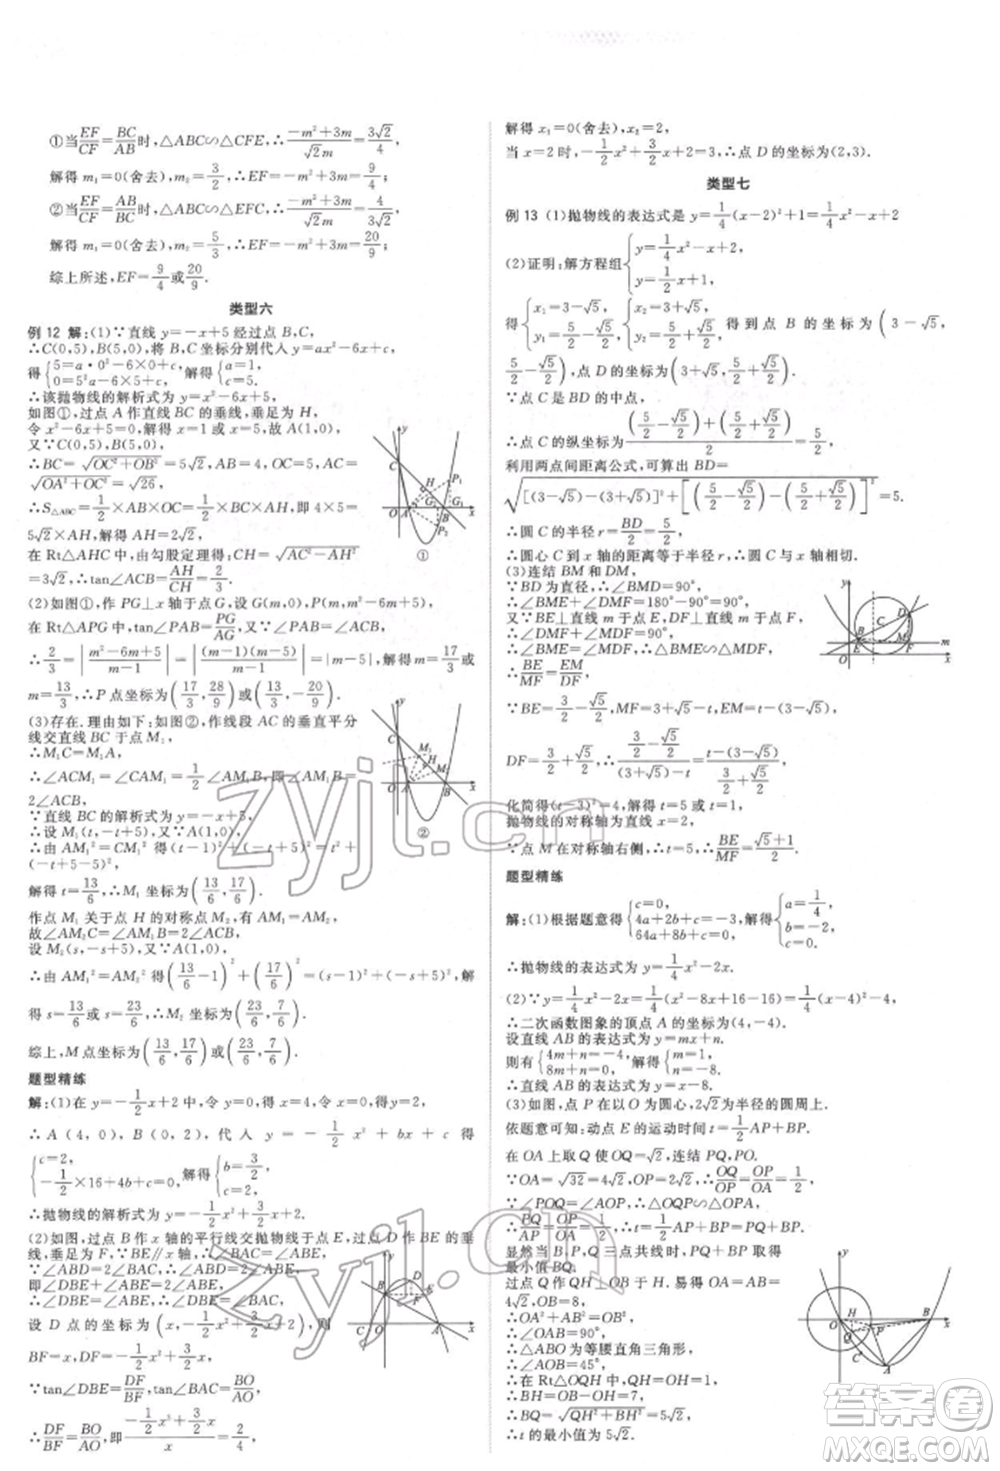 ①当EF/CF=BC/AB时,△ABC∽△CFE,∴(-m²+3m)/(√2m)=3√2/4,
解得 m₁=0(舍去),m₂=3/2,∴EF=-m²+3m=9/4;
②当EF/CF=AB/BC时,△ABC∽△EFC,∴(-m²+3m)/(√2m)=2√2/3,
解得 m₁=0(舍去),m₂=5/3,∴EF=-m²+3m=20/9.
综上所述,EF=9/4或20/9.
类型六
例 12 解:(1)∵直线 y=-x+5 经过点 B,C,
∴C(0,5),B(5,0),将 B,C 坐标分别代入 y=ax²-6x+c,
得{5=a·0²-6×0+c, 0=5²a-6×5+c, 解得{a=1, c=5.
∴该抛物线的解析式为 y=x²-6x+5,
如图①,过点 A 作直线 BC 的垂线,垂足为 H,
令 x²-6x+5=0,解得 x=1 或 x=5,故 A(1,0),
又∵C(0,5),
∴BC=√(OC²+OB²)=5√2,AB=4,AC=
√(OA²+OC²)=√26,
∴S△ABC=1/2×AB×OC=1/2×BC×AH,即 4×5=
5√2×AH,解得 AH=2√2,
在 Rt△AHC 中,由勾股定理得:CH=√(AC²-AH²)
=3√2,∴tan∠ACB=AH/CH=2/3.
(2)如图①,作 PG⊥x 轴于点 G,设 G(m,0),P(m,m²-6m+5),
在 Rt△APG 中,tan∠PAB=PG/AG,
∴2/3=|(m²-6m+5)/(m-1)|=|(m-1)(m-5)/(m-1)|=|m-5|,解得 m=17/3或
m=13/3,∴P 点坐标为(17/3,28/9)或(13/3,-20/9).
(3)存在.理由如下:如图②,作线段 AC 的垂直平分
线交直线 BC 于点 M₁,
∴M₁C=M₁A,
∴∠ACM₁=∠CAM₁=1/2∠AM₁B,∴∠AM₁B=
2∠ACB,
∵直线 BC 的解析式为 y=-x+5,
∴设 M₁(t,-t+5),又∵A(1,0),
∴由 AM₁=CM₁得(t-1)²+(-t+5)²=t²+
(-t+5-5)²,
解得 t=13/6,∴M₁ 坐标为(13/6,17/6).
作点 M₁ 关于点 H 的对称点 M₂,
故∠AM₂C=∠AM₁B=2∠ACB,
设 M₂(s,-s+5),又∵A(1,0),
∴由 AM₁²=AM₂²得(13/6-1)²+(17/6)²=(s-1)²+(-s+5)²,解
得 s=13/6或 s=23/6,∴M₂ 坐标为(23/6,7/6).
综上,M 点坐标为(13/6,17/6)或(23/6,7/6).
题型精练
解:(1)在 y=-1/2x+2 中,令 y=0,得 x=4,令 x=0,得y=2,
∴A(4,0),B(0,2),代入 y=-1/2x²+bx+c 得
{c=2, -1/2×16+4b+c=0, 解得{b=3/2, c=2.
∴抛物线的解析式为 y=-1/2x²+3/2x+2.
(2)如图,过点 B 作 x 轴的平行线交抛物线于点 E,过点 D 作 BE 的垂
线,垂足为 F,∵BE∥x 轴,∴∠BAC=∠ABE,
∵∠ABD=2∠BAC,∴∠ABD=2∠ABE,
即∠DBE+∠ABE=2∠ABE,
∴∠DBE=∠ABE,∴∠DBE=∠BAC,
设 D 点的坐标为(x,-1/2x²+3/2x+2),则
BF=x,DF=-1/2x²+3/2x,
∵tan∠DBE=DF/BF,tan∠BAC=BO/AO,
∴DF/BF=BO/AO,即(-1/2x²+3/2x)/x=2/4,
①
②
解得 x₁=0(舍去),x₂=2,
当 x=2 时,-1/2x²+3/2x+2=3,∴点 D 的坐标为(2,3).
类型七
例 13 (1)抛物线的表达式是 y=1/4(x-2)²+1=1/4x²-x+2
(2)证明:解方程组{y=1/4x²-x+2, y=1/2x+1,
得{x₁=3-√5, y₁=5/2-√5/2, {x₂=3+√5, y₂=5/2+√5/2, 得到点 B 的坐标为(3-√5,
5/2-√5/2),点 D 的坐标为(3+√5,5/2+√5/2).
∵点 C 是 BD 的中点,
∴点 C 的纵坐标为((5/2-√5/2)+(5/2+√5/2))/2=5/2,
利用两点间距离公式,可算出 BD=
√([(3-√5)-(3+√5)]²+[(5/2-√5/2)-(5/2+√5/2)]²)=5.
∴圆 C 的半径 r=BD/2=5/2,
∴圆心 C 到 x 轴的距离等于半径 r,∴圆 C 与 x 轴相切.
(3)连结 BM 和 DM,
∵BD 为直径,∴∠BMD=90°,
∴∠BME+∠DMF=180°-90°=90°,
又∵BE⊥直线 m 于点 E,DF⊥直线 m 于点 F,
∴∠DMF=∠MBE,∴△BME∽△MDF,
∴BE/MF=EM/DF,
∵BE=5/2-√5/2,MF=3+√5-t,EM=t-(3-√5),
DF=5/2+√5/2,
化简得(t-3)²=4,解得 t=5 或 t=1,
抛物线的对称轴为直线 x=2,
∵点 M 在对称轴右侧,∴t=5,∴BE/MF=(√5+1)/2.
题型精练
解:(1)根据题意得{c=0, 4a+2b+c=-3, 64a+8b+c=0, 解得{a=1/4, b=-2, c=0.
∴抛物线的表达式为 y=1/4x²-2x.
(2)∵y=1/4x²-2x=1/4(x²-8x+16-16)=1/4(x-4)²-4,
∴二次函数图象的顶点 A 的坐标为(4,-4).
设直线 AB 的表达式为 y=mx+n.
则有{4m+n=-4, 8m+n=0, 解得{m=1, n=-8.
∴直线 AB 的表达式为 y=x-8.
(3)如图,点 P 在以 O 为圆心,2√2为半径的圆周上.
依题意可知:动点 E 的运动时间 t=1/2AP+PB.
在 OA 上取点 Q,使 OQ=√2,连结 PQ,PO,
∵OA=√32=4√2,OP=2√2,∴OQ/OP=OP/OA=1/2.
∵∠POQ=∠AOP,∴△OPQ∽△OPA,
∴PQ/AP=OP/OA=1/2,∴PQ=1/2AP,∴t=PQ+PB,
显然当 B,P,Q 三点共线时,PQ+PB 取得
最小值 BQ.
过点 Q 作 QH⊥OB 于 H.易得 OA=AB=
4√2,OB=8,
∴OA²+AB²=OB²,
∴∠OAB=90°,
∴△OAB为等腰直角三角形,
∴∠AOB=45°,
∴在 Rt△OQH 中,OH=QH=1,
∴BH=OB-OH=7,
∴BQ=√(QH²+BH²)=5√2,
∴t 的最小值为 5√2.
zyjl.cn
zyjl.cn
答案圈
MXQE.COM